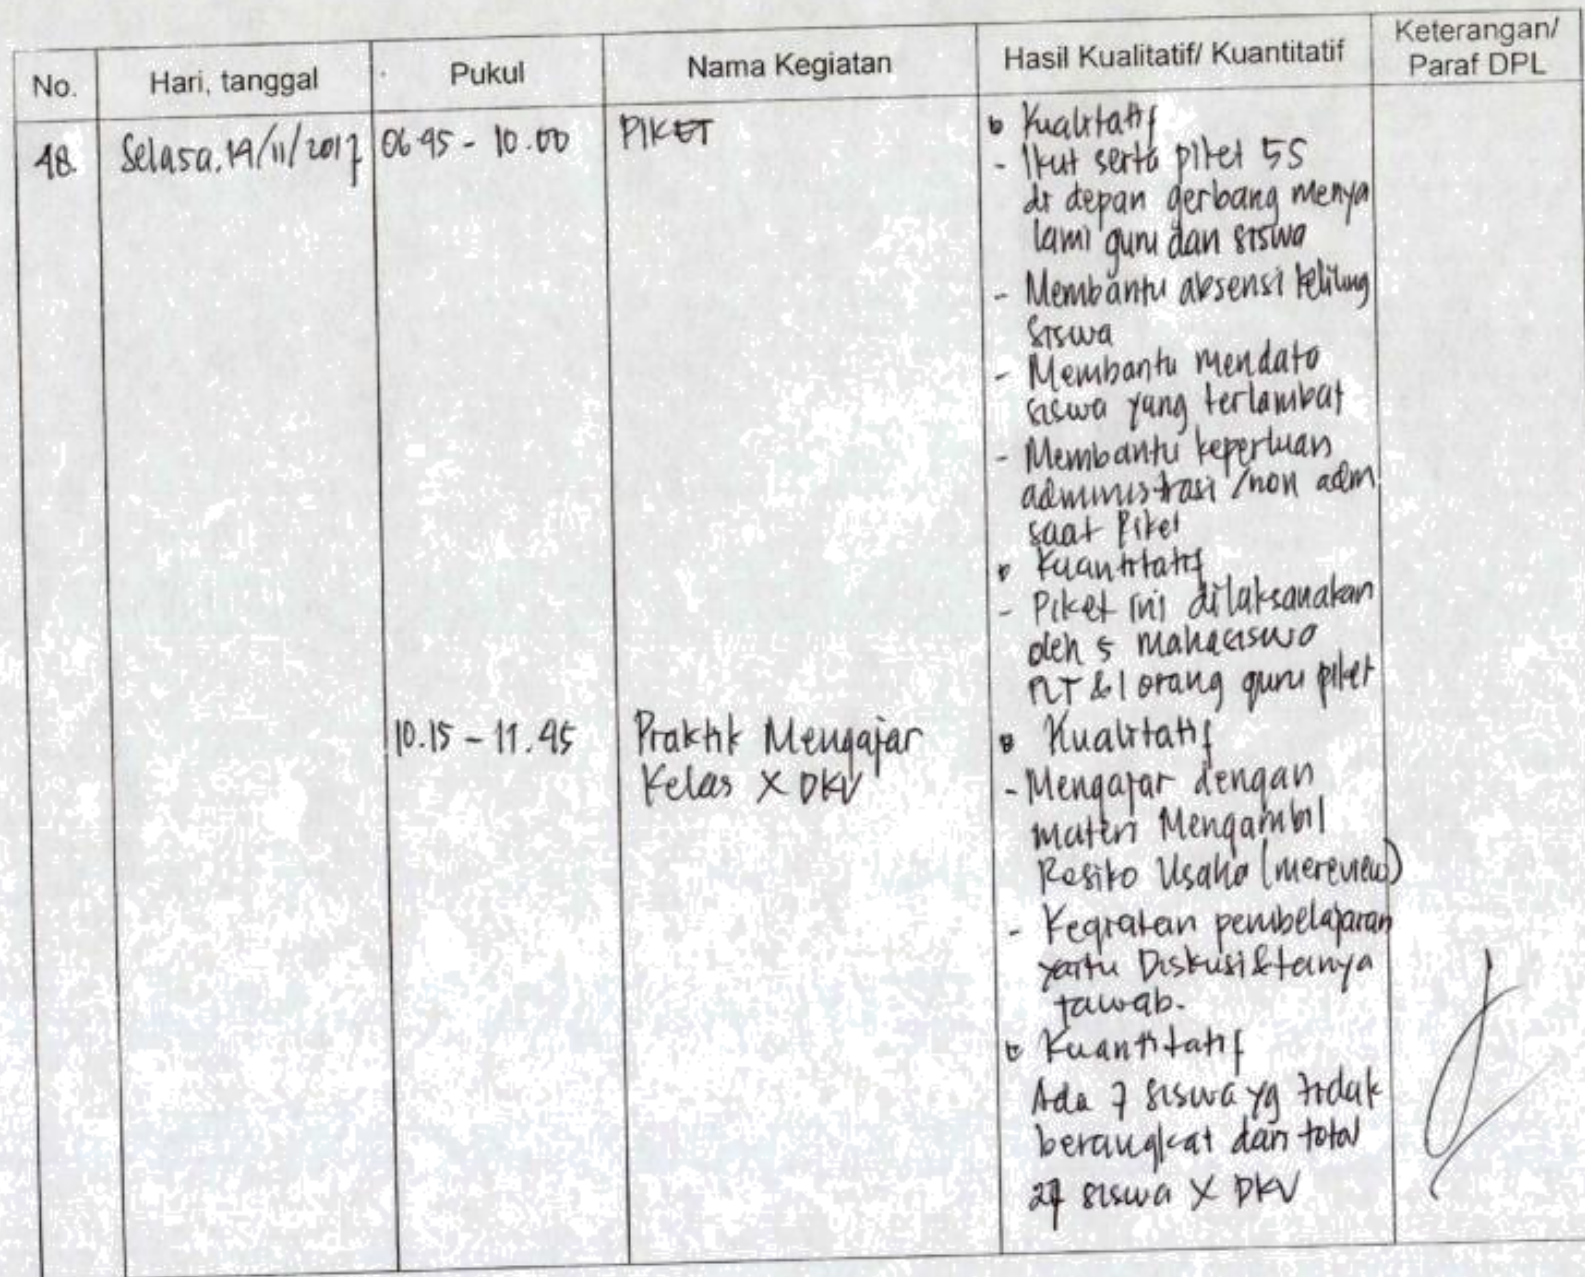 No.
Hari, tanggal
Pukul
Nama Kegiatan
Hasil Kualitatif/ Kuantitatif
Keterangan/
Paraf DPL
48.
Selasa, 14/11/2017
06.45 - 10.00
PIKET
Kualitatif
- Ikut serta piket 5S
di depan gerbang menya
lami guru dan siswa
- Membantu absensi keliling
siswa
- Membantu mendata
siswa yang terlambat
- Membantu keperluan
administrasi /non adm
saat piket
Kuantitatif
- Piket ini dilaksanakan
oleh 5 mahasiswa
PLT & 1 orang guru piket
10.15 - 11.45
Praktik Mengajar
Kelas X DKV
Kualitatif
- Mengajar dengan
materi Mengambil
Resiko Usaha (mereview)
- Kegiatan pembelajaran
yaitu Diskusi & tanya
jawab.
Kuantitatif
Ada 7 siswa yg tidak
berangkat dari total
27 siswa X DKV